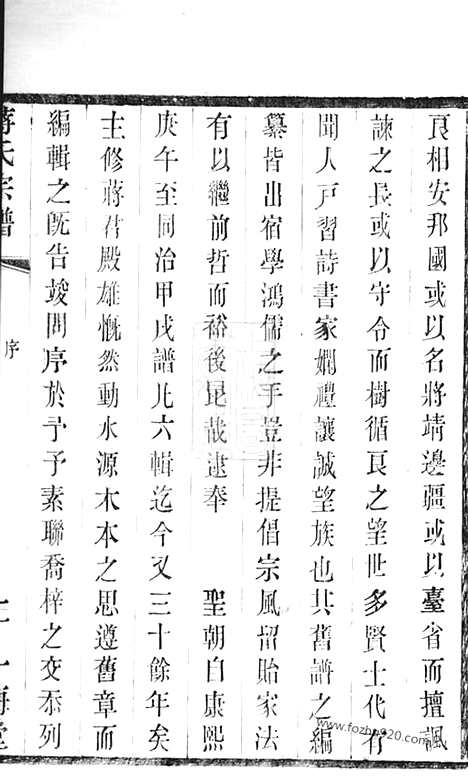 良相安邦國或以名將靖邊疆或以臺省而擅諷
諫之長或以守令而樹循良之望世多賢士代有
聞人戸習詩書家嫺禮讓誠望族也其舊譜之編
纂皆出宿學鴻儒之手豈非提倡宗風留貽家法
有以繼前哲而裕後昆哉逮奉 聖朝自康熙
庚午至同治甲戌譜凡六輯迄今又三十餘年矣
主修蔣君殿雄慨然動水源木本之思遵舊章而
編輯之旣告竣問序於予予素聯喬梓之交忝列
蔣氏宗譜
序
www.fozhu920.com